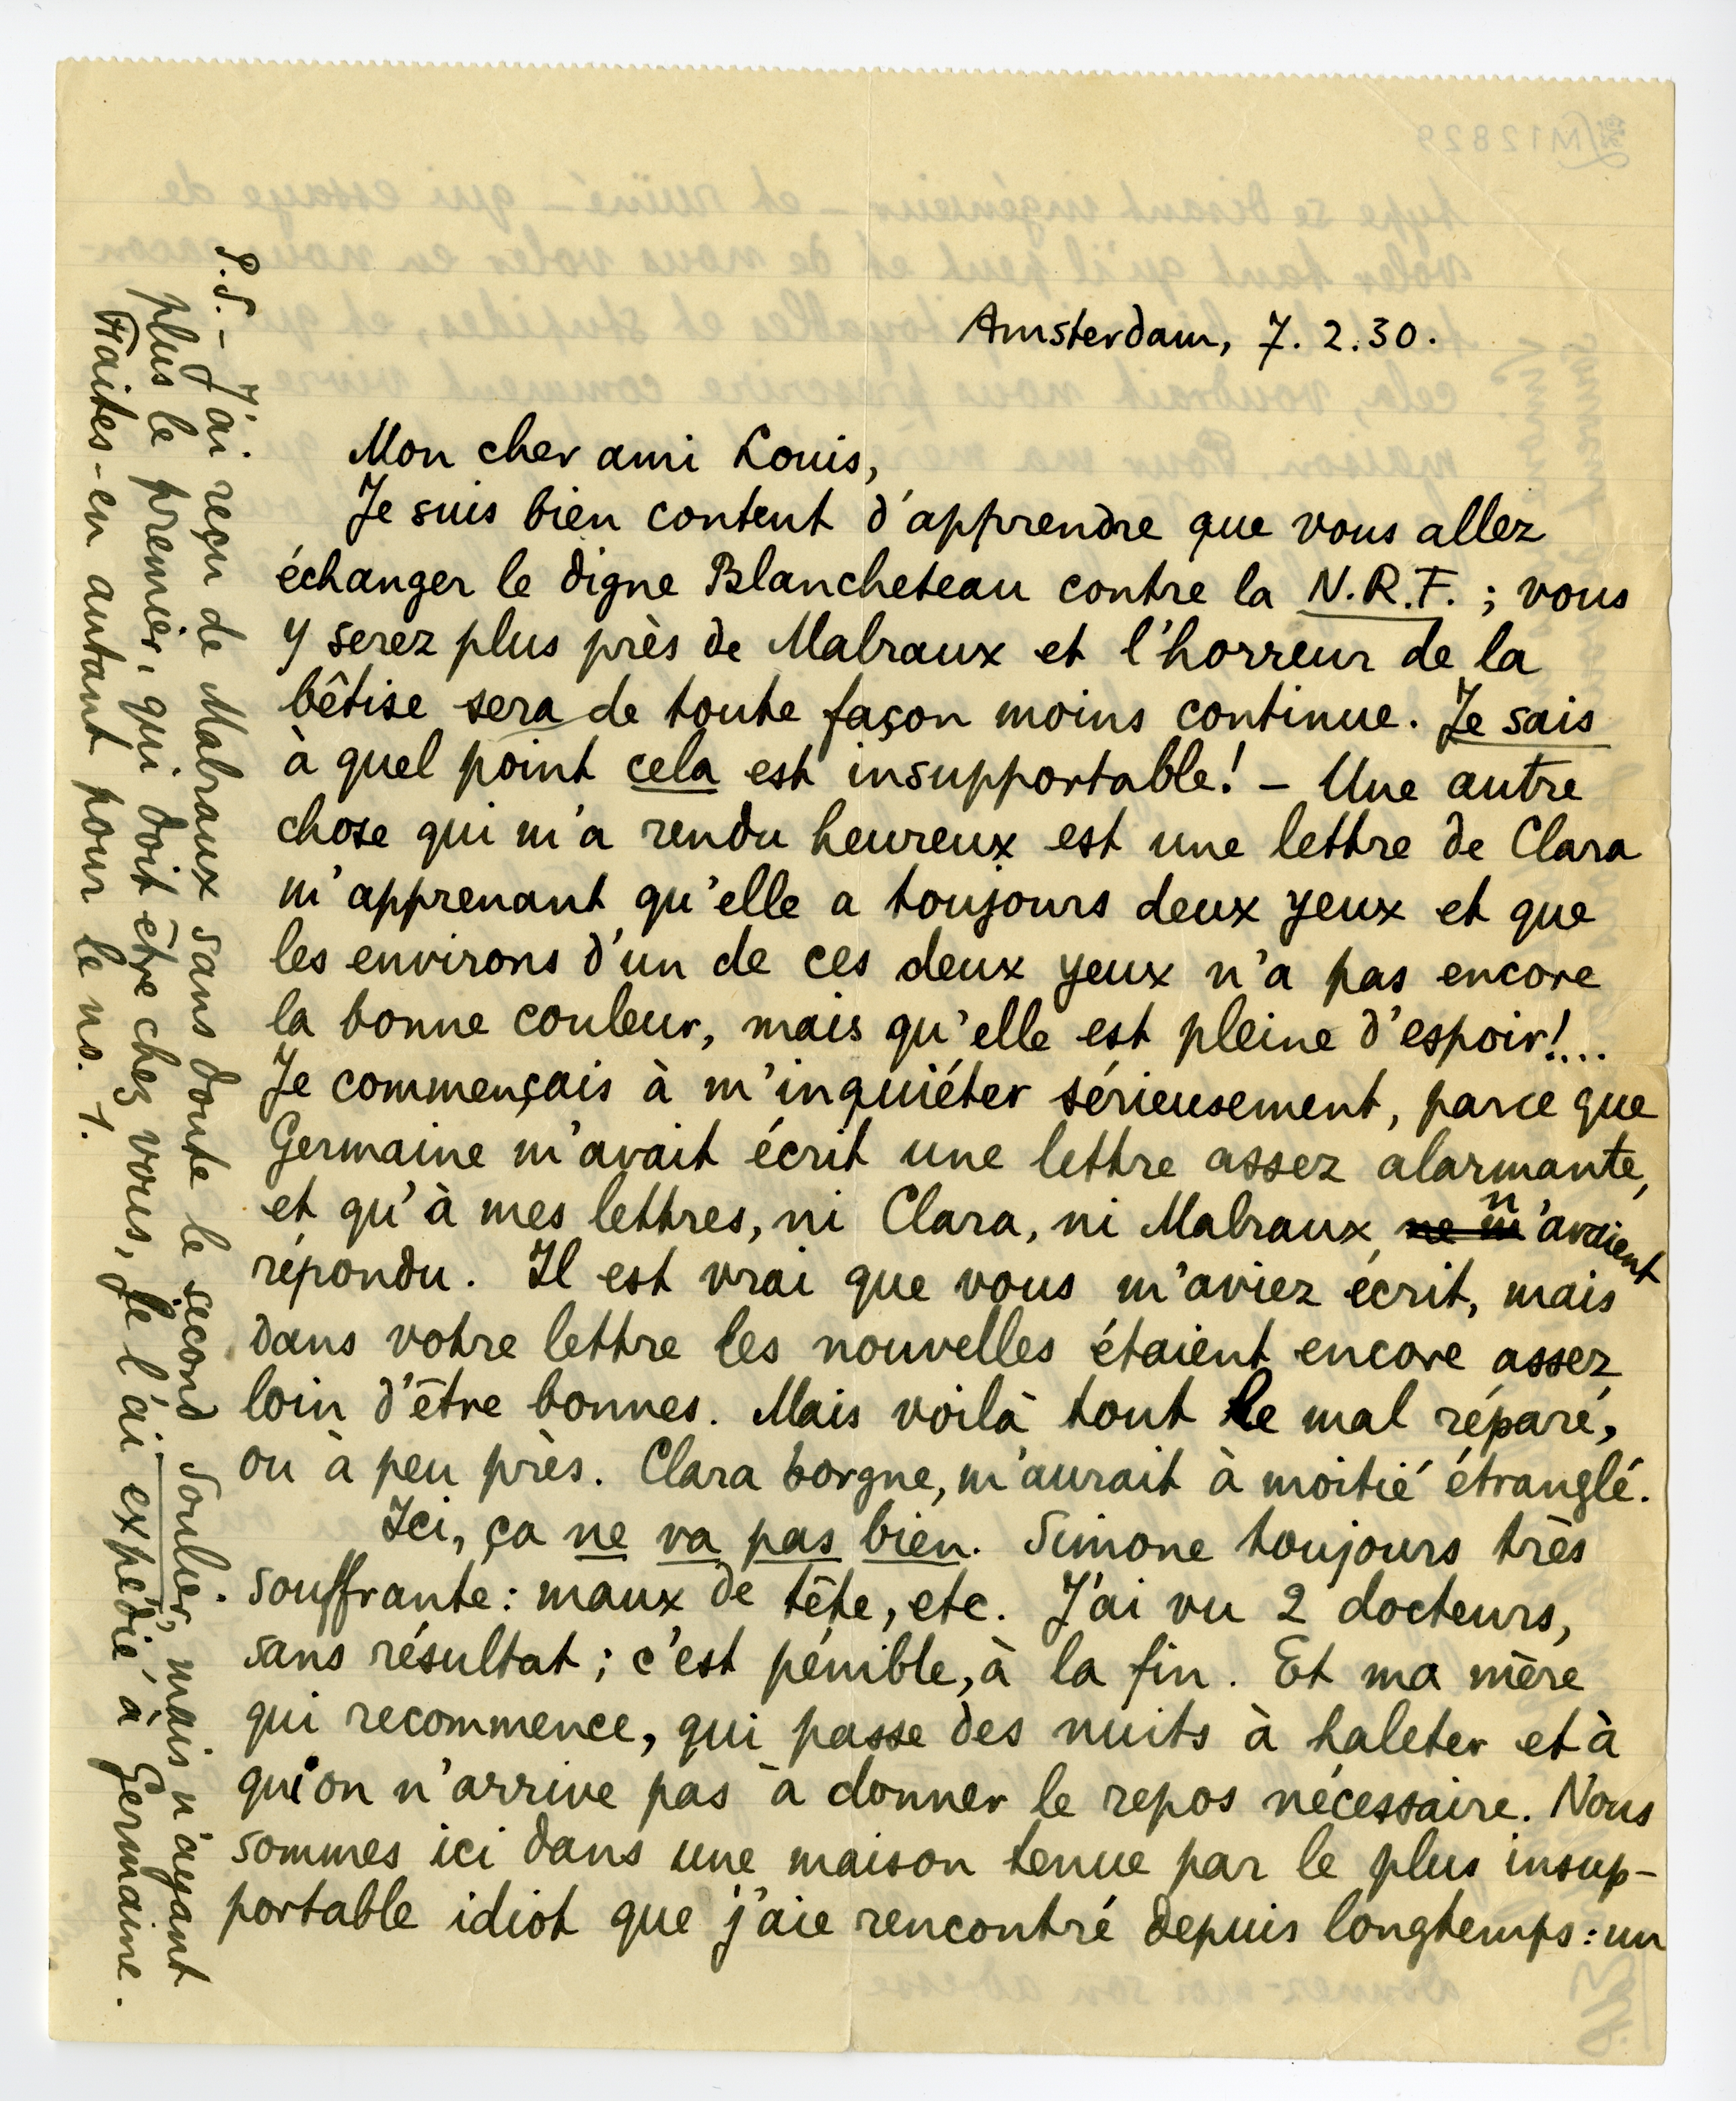 Amsterdam, 7. 2. 30.
Mon cher ami Louis,
Je suis bien content d'apprendre que vous allez
échanger le digne Blancheteau contre la N.R.F. ; vous
y serez plus près de Malraux et l'horreur de la
bêtise sera de toute façon moins continue. Je sais
à quel point cela est insupportable! – Une autre
chose qui m'a rendu heureux est une lettre de Clara
m'apprenant qu'elle a toujours deux yeux et que
les environs d'un de ces deux yeux n'a pas encore
la bonne couleur, mais qu'elle est pleine d'espoir!...
Je commençais à m'inquiéter sérieusement, parce que
Germaine m'avait écrit une lettre assez alarmante,
et qu'à mes lettres, ni Clara, ni Malraux, ne m n'avaient
répondu. Il est vrai que vous m'aviez écrit, mais
dans votre lettre les nouvelles étaient encore assez
loin d'être bonnes. Mais voilà tout le mal réparé,
ou à peu près. Clara borgne, m'aurait à moitié étranglé.
Ici, ça ne va pas bien. Simone toujours très
souffrante : maux de tête, etc. J'ai vu 2 docteurs,
sans résultat ; c'est pénible, à la fin. Et ma mère
qui recommence, qui passe des nuits à haleter et à
qui on n'arrive pas à donner le repos nécessaire. Nous
sommes ici dans une maison tenue par le plus insup-
portable idiot que j'aie rencontré depuis longtemps : un
P.S. – J'ai reçu de Malraux sans doute le second Soulier, mais n'ayant
plus le premier, qui doit être chez vous, je l'ai expédié à Germaine.
Faites-en autant pour le no. 1.
M12829